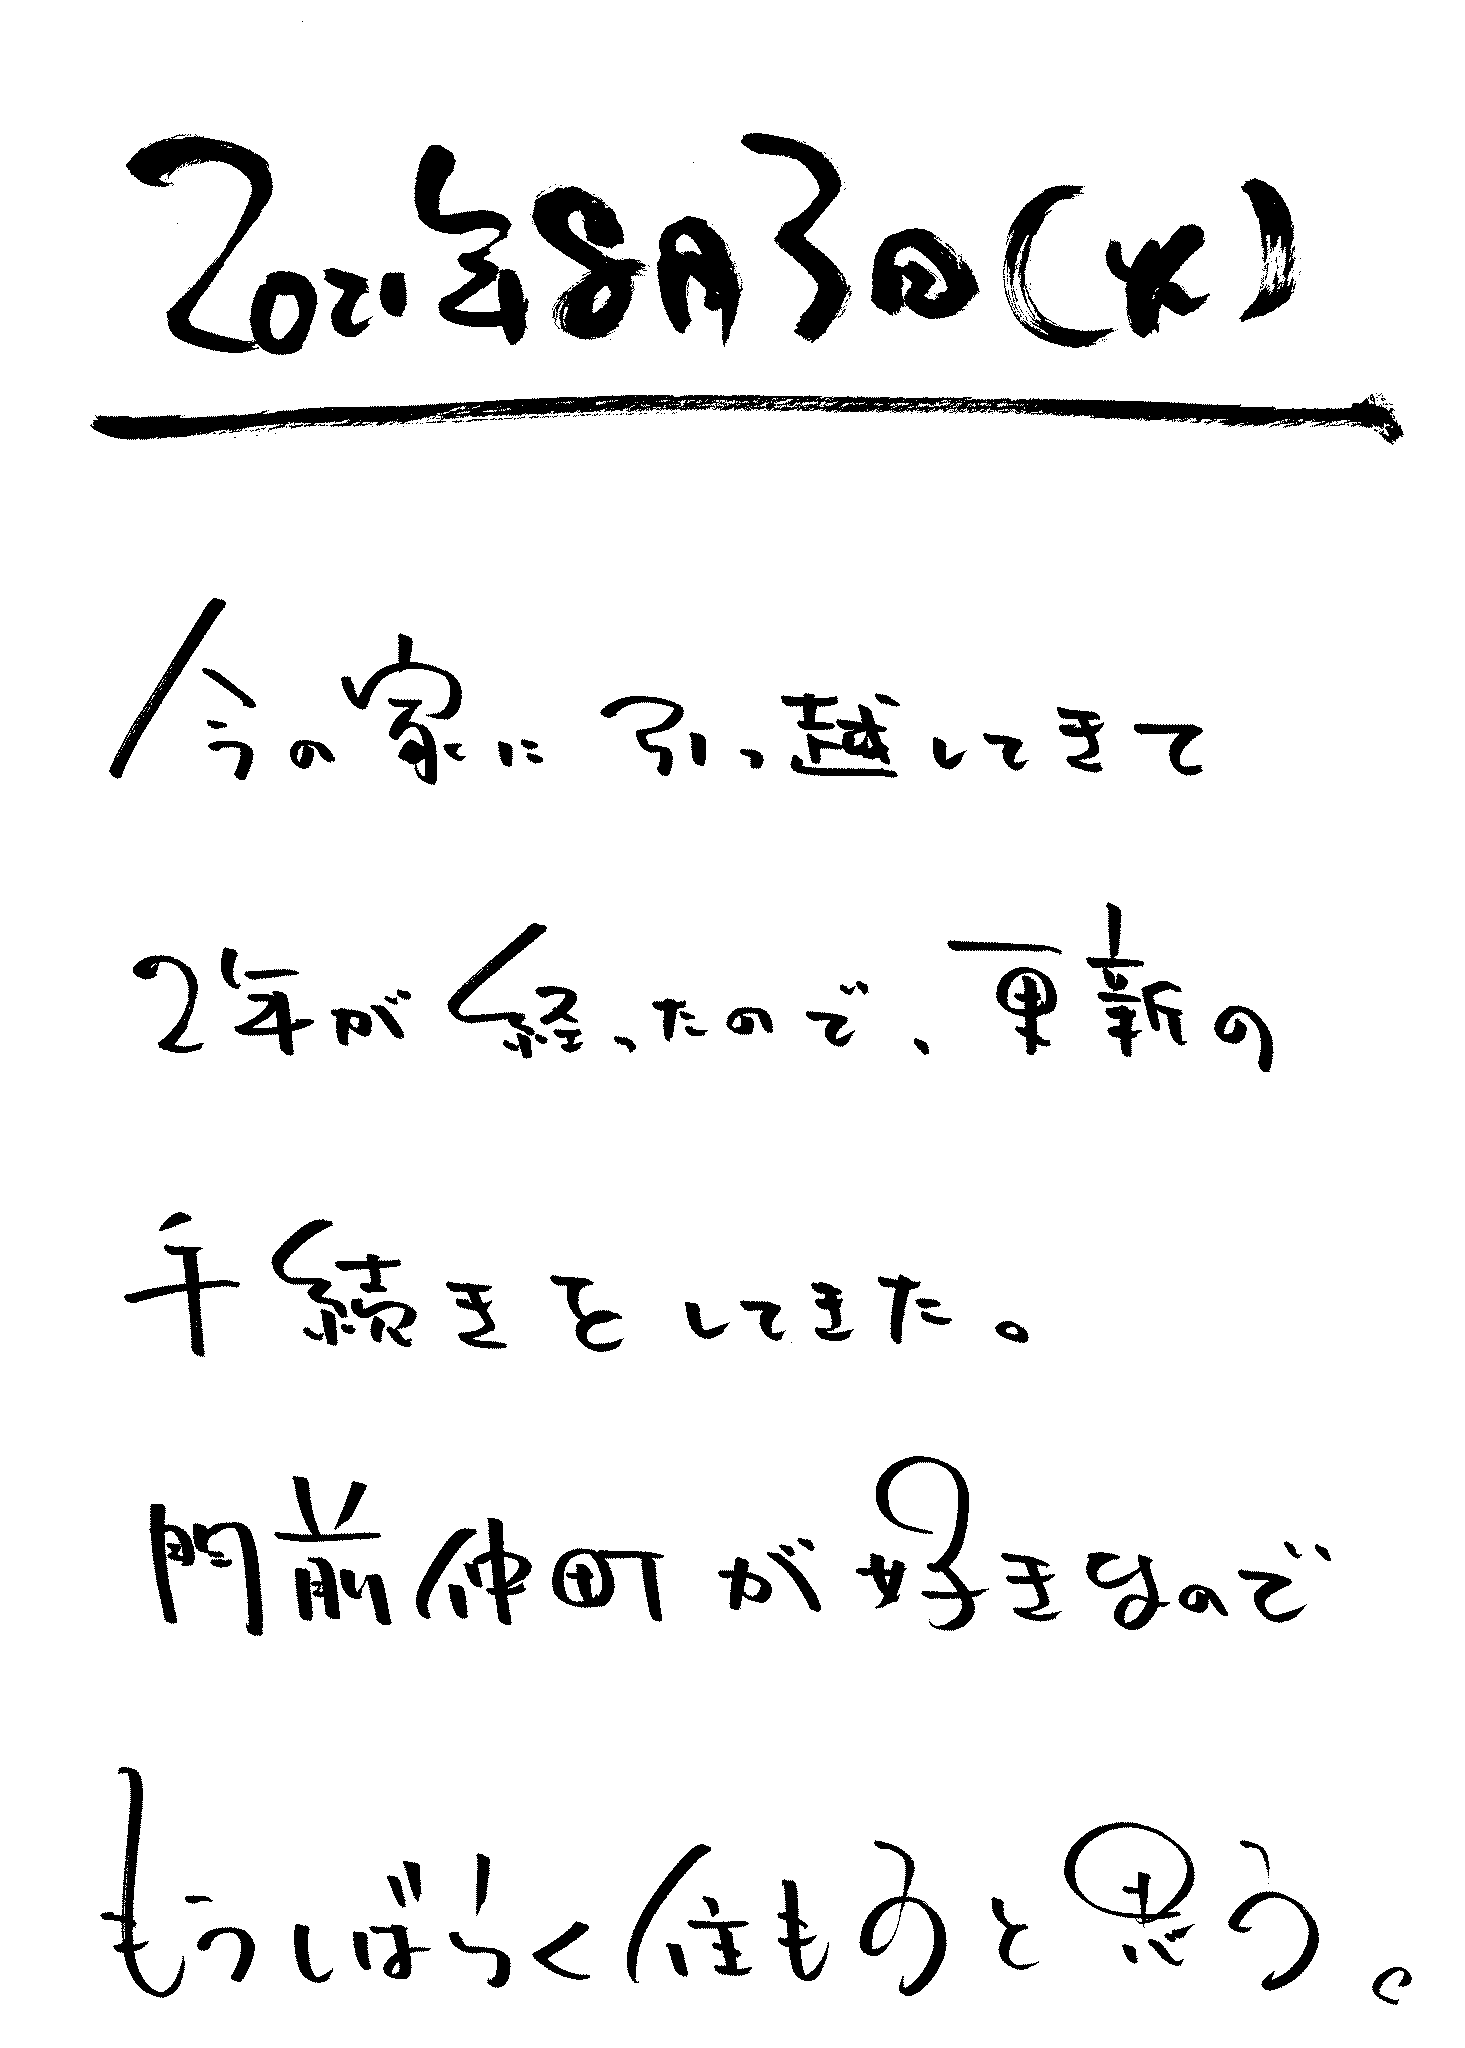 2021年8月3日(火)
今の家に引っ越してきて
2年が経ったので、更新の
手続きをしてきた。
門前仲町が好きなので
もうしばらく住もうと思う。